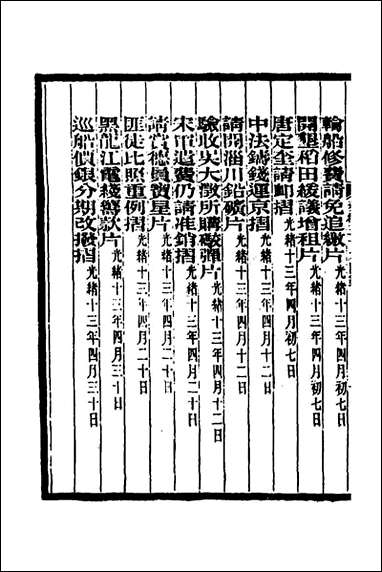 輪船修費請免追繳片光緒十三年四月初七日
開墾稻田緩議增租片光緒十三年四月初七日
唐定奎請卹摺光緒十三年四月初七日
中法鑄錢運京摺光緒十三年四月十二日
請開淄川鉛礦片光緒十三年四月十二日
驗收吳大澂所購礮彈片光緒十三年四月十二日
宋軍退費仍請准銷摺光緒十三年四月二十日
請賞德員寶星片光緒十三年四月二十日
匪徒比照重例摺光緒十三年四月二十日
黑龍江電綫籌款片光緒十三年四月三十日
巡船價銀分期改撥摺光緒十三年四月三十日